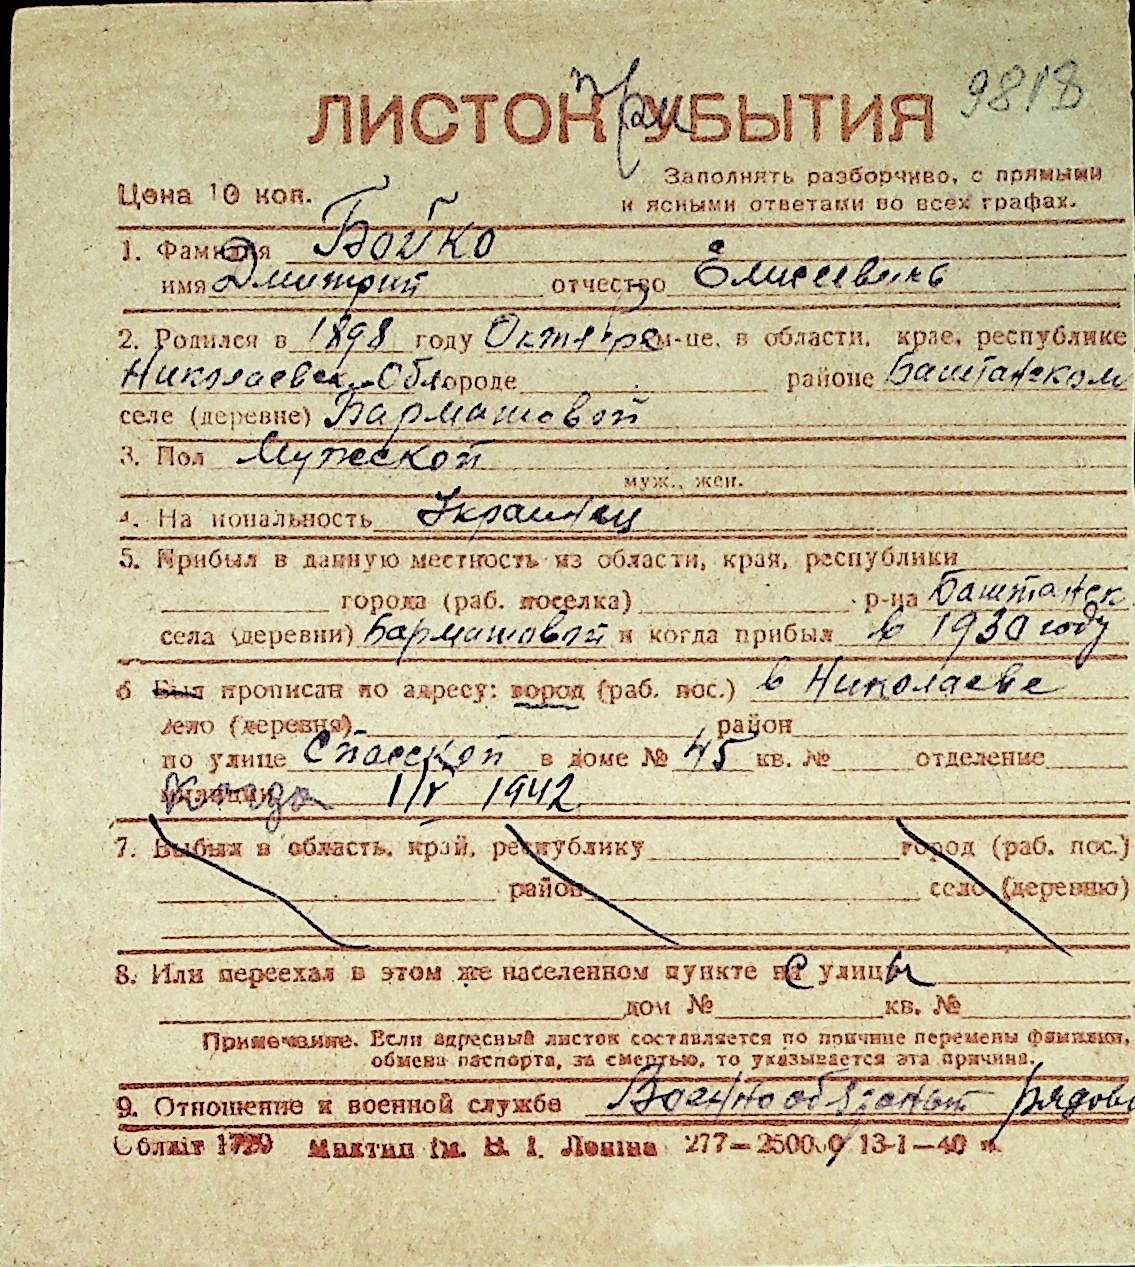 9818
при
ЛИСТОК УБЫТИЯ
Цена 10 коп.
Заполнять разборчиво, с прямыми
и ясными ответами во всех графах.
1. Фамилия Бойко
имя Дмитрий отчество Елисеевичь
2. Родился в 1898 году Октябре м-це, в области, крае, республике
Николаевск. Обл. городе районе Баштанском
селе (деревне) Бармашовой
3. Пол Мужской
муж., жен.
4. Национальность Украинец
5. Прибыл в данную местность из области, края, республики
города (раб. поселка) р-на Баштанск
села (деревни) Бармашовой и когда прибыл в 1930 году
6 Был прописан по адресу: город (раб. пос.) в Николаеве
село (деревня) район
по улице Спасской в доме № 45 кв. № отделение
милиции Когда 1/V 1942
7. Выбыл в область, край, республику город (раб. пос.)
район село (деревню)
8. Или переехал в этом же населенном пункте с улицы
дом № кв. №
Примечание. Если адресный листок составляется по причине перемены фамилии,
обмена паспорта, за смертью, то указывается эта причина.
9. Отношение к военной службе Военнообязаный рядово
Облліт 1729 Миктип ім. В. І. Леніна 277—25000 13-1—40